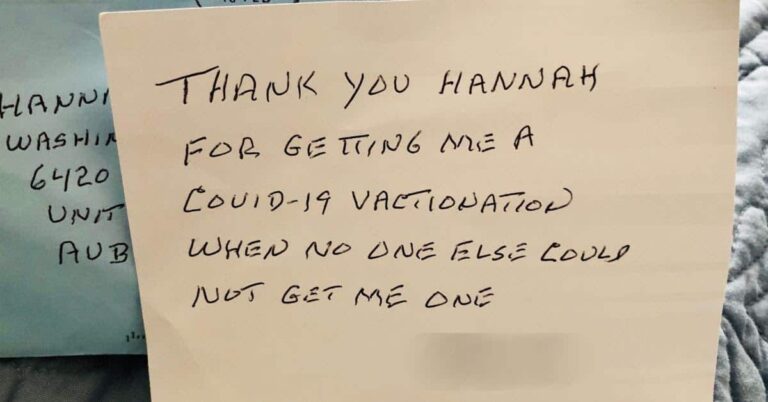 HANN
WASHIN
6420
UNIT
AUB
THANK YOU HANNAH
FOR GETTING ME A
COVID-19 VACTIONATION
WHEN NO ONE ELSE COULD
NOT GET ME ONE